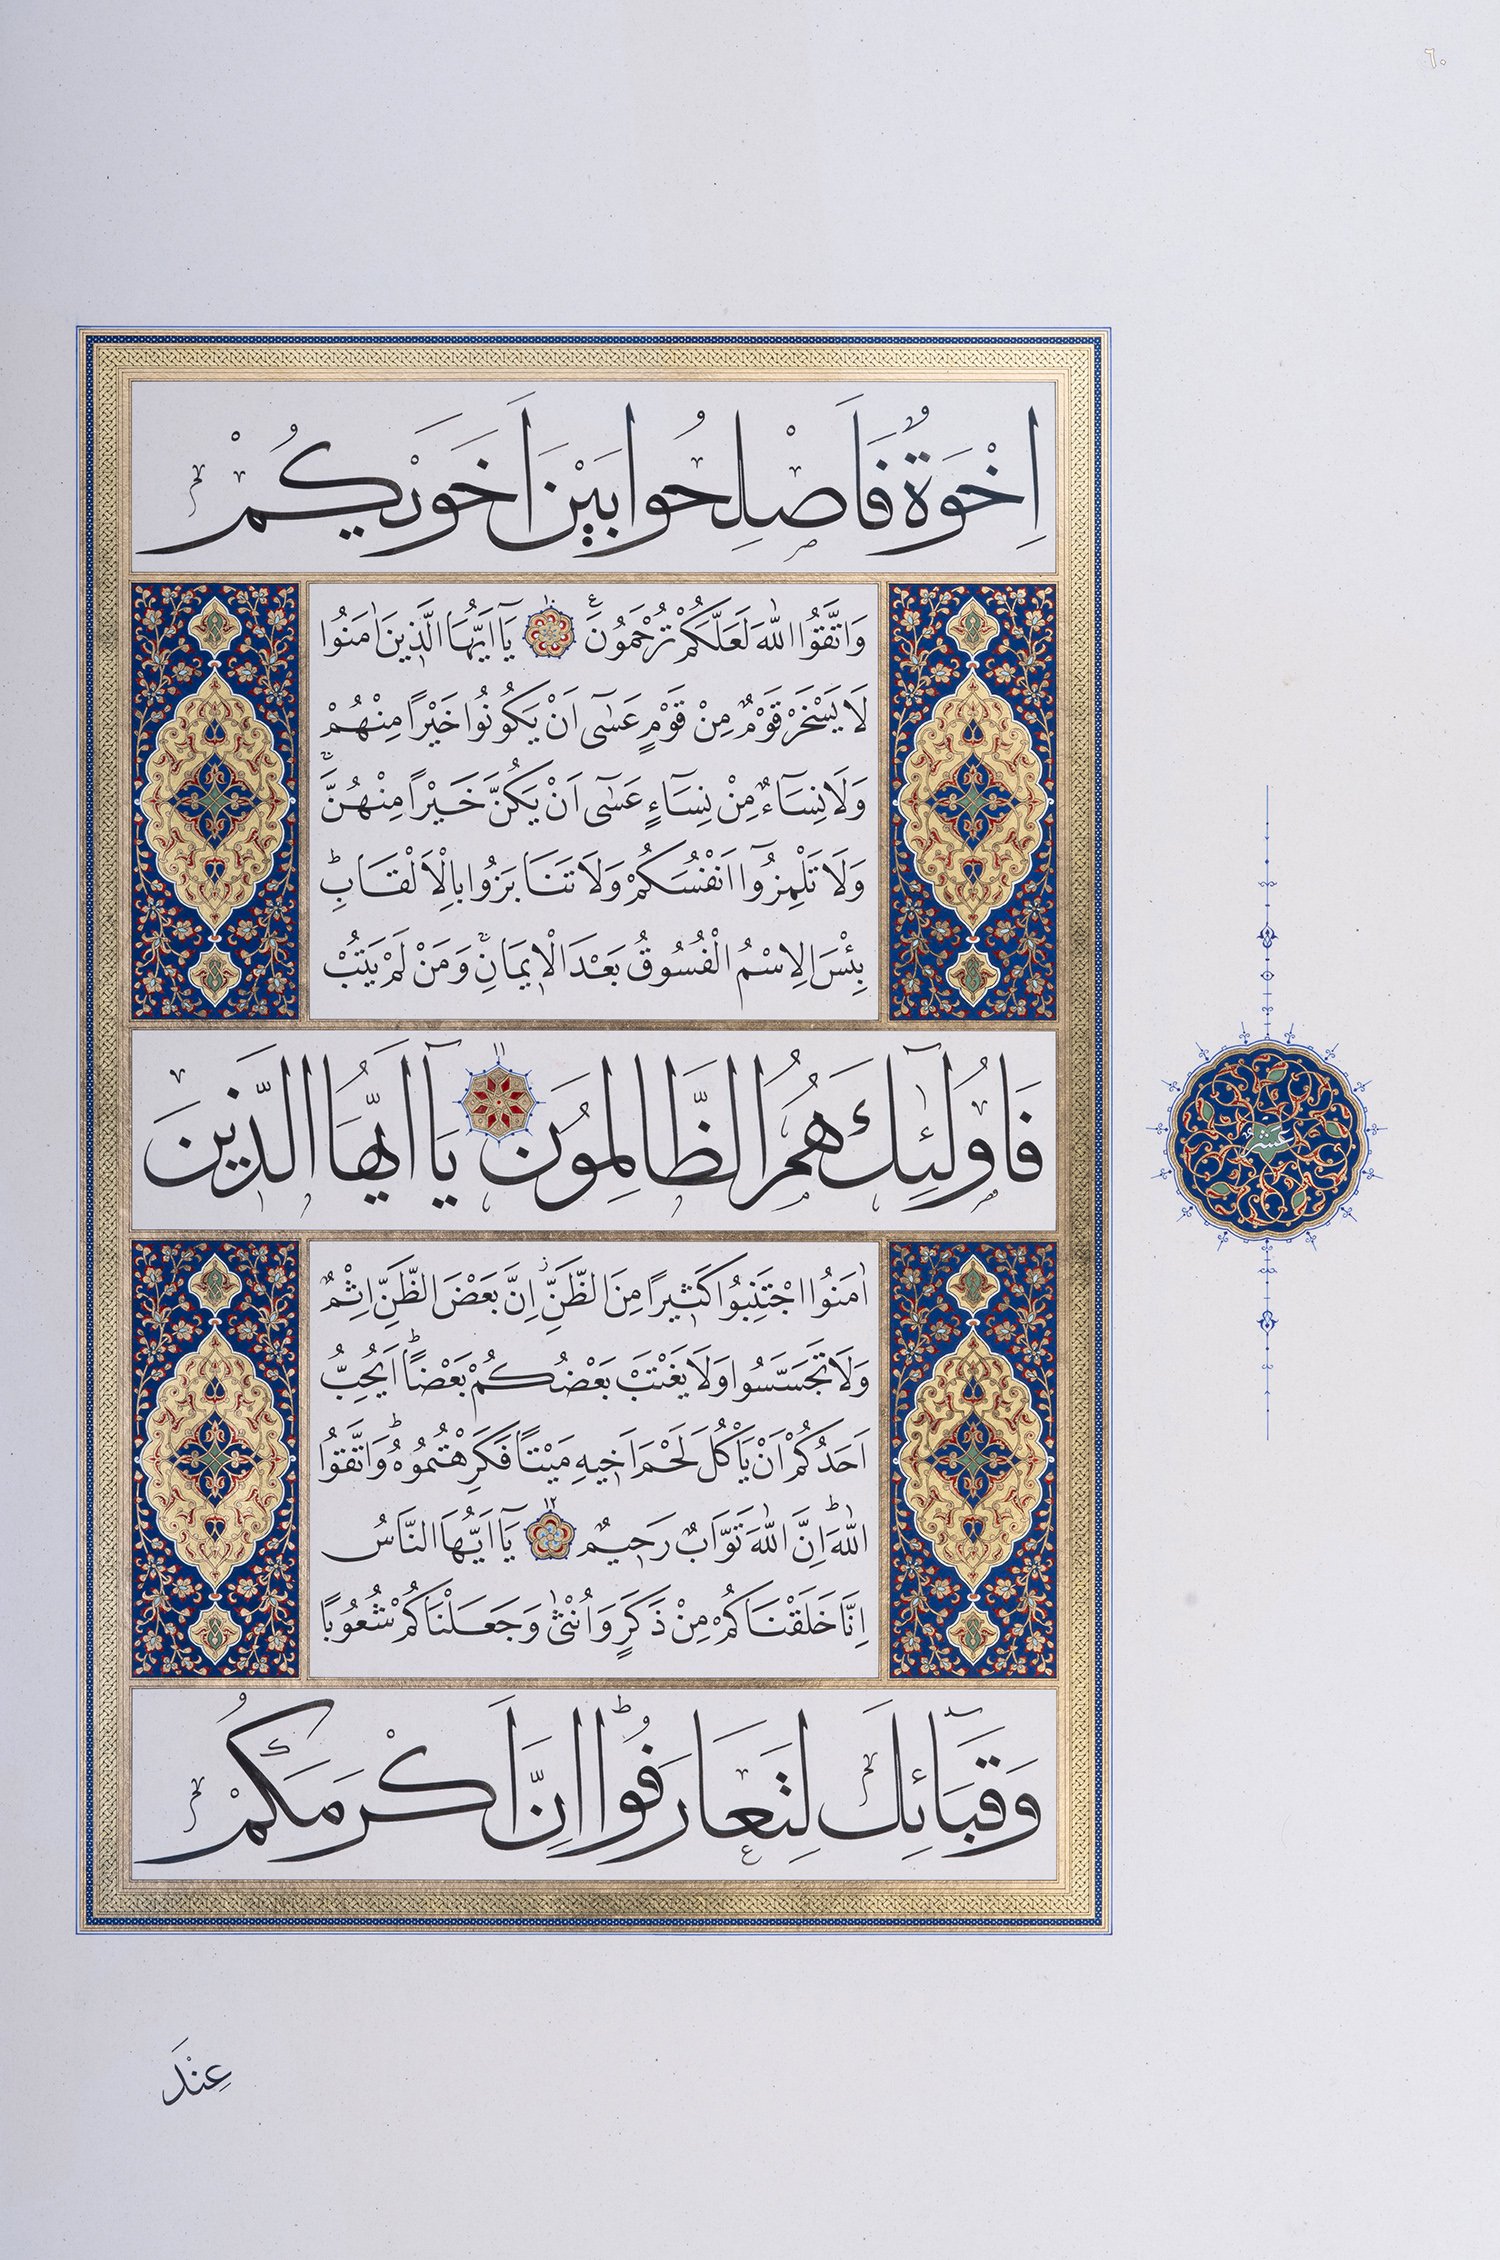 ٦٠
اِخْوَةٌ فَاَصْلِحُوا بَيْنَ اَخَوَيْكُمْ
وَاتَّقُوا اللّٰهَ لَعَلَّكُمْ تُرْحَمُونَ ۝١٠ يَٓا اَيُّهَا الَّذ۪ينَ اٰمَنُوا
لَا يَسْخَرْ قَوْمٌ مِنْ قَوْمٍ عَسٰٓى اَنْ يَكُونُوا خَيْرًا مِنْهُمْ
وَلَا نِسَٓاءٌ مِنْ نِسَٓاءٍ عَسٰٓى اَنْ يَكُنَّ خَيْرًا مِنْهُنَّۚ
وَلَا تَلْمِزُٓوا اَنْفُسَكُمْ وَلَا تَنَابَزُوا بِالْاَلْقَابِۜ
بِئْسَ الِاسْمُ الْفُسُوقُ بَعْدَ الْا۪يمَانِۚ وَمَنْ لَمْ يَتُبْ
فَاُو۬لٰٓئِكَ هُمُ الظَّالِمُونَ ۝١١ يَٓا اَيُّهَا الَّذ۪ينَ
اٰمَنُوا اجْتَنِبُوا كَث۪يرًا مِنَ الظَّنِّۘ اِنَّ بَعْضَ الظَّنِّ اِثْمٌ
وَلَا تَجَسَّسُوا وَلَا يَغْتَبْ بَعْضُكُمْ بَعْضًاۜ اَيُحِبُّ
اَحَدُكُمْ اَنْ يَأْكُلَ لَحْمَ اَخ۪يهِ مَيْتًا فَكَرِهْتُمُوهُۜ وَاتَّقُوا
اللّٰهَۜ اِنَّ اللّٰهَ تَوَّابٌ رَح۪يمٌ ۝١٢ يَٓا اَيُّهَا النَّاسُ
اِنَّا خَلَقْنَاكُمْ مِنْ ذَكَرٍ وَاُنْثٰى وَجَعَلْنَاكُمْ شُعُوبًا
وَقَبَٓائِلَ لِتَعَارَفُواۜ اِنَّ اَكْرَمَكُمْ
عشر
عِنْدَ